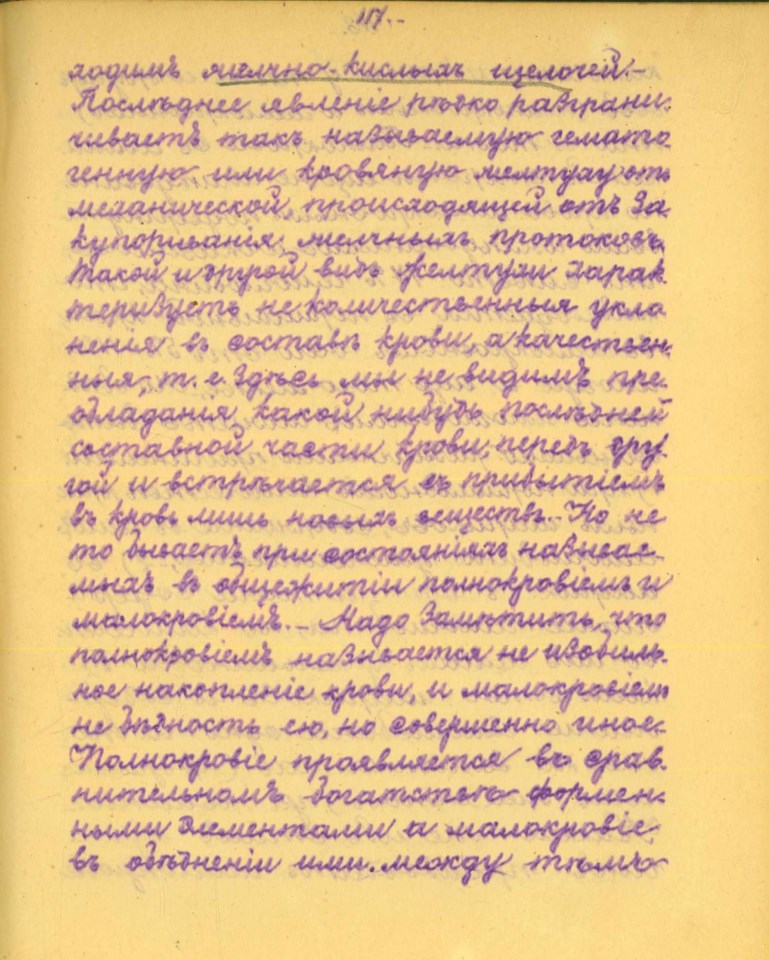 117.--
ходимъ желчно-кислыхъ щелочей.-
Послѣднее явленіе рѣзко разграни-
чиваетъ такъ называемую гемато
генную или кровяную желтуху отъ
механической, происходящей отъ за-
купориванія желчныхъ протоковъ.
Такой и другой видъ желтухи харак-
теризуетъ не количественныя укло
ненія въ составѣ крови, а качествен-
ныя, т. е. здѣсь мы не видимъ пре-
обладанія какой нибудь послѣдней
составной части крови, передъ дру-
гой и встрѣчается съ прибытіемъ
въ кровь лишь новыхъ веществъ.- Но не
то бываетъ при состояніяхъ называе-
мыхъ въ общежитіи полнокровіемъ и
малокровіемъ.- Надо замѣтить, что
полнокровіемъ называется не изобиль-
ное накопленіе крови, и малокровіемъ
не бѣдность ею, но совершенно иное.
Полнокровіе проявляется въ срав-
нительномъ богатствѣ формен-
ными элементами а малокровіе
въ обѣдненіи ими. между тѣмъ